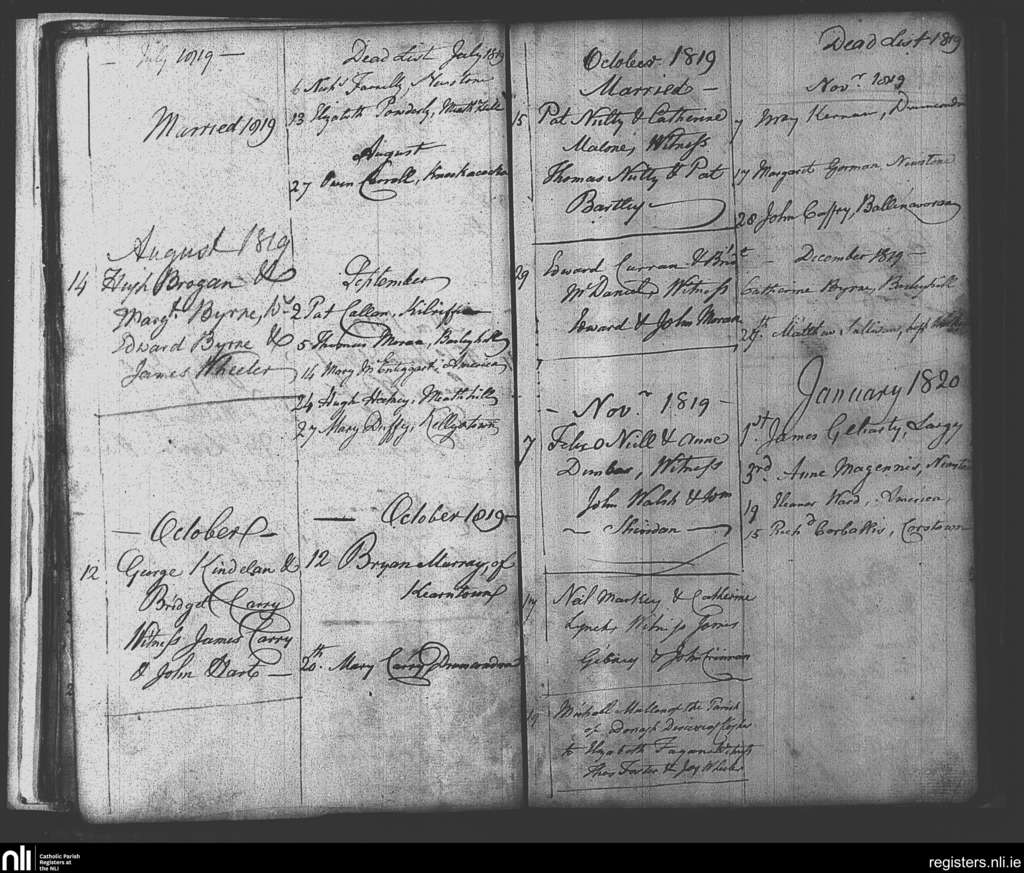 July 1819 —
Married 1819
August 1819
14 Hugh Brogan &
Margt. Byrne, Ws
Edward Byrne &
James Wheeler
— October —
12 George Kindelan &
Bridget Carry
Witness James Carry
& John Harte —
Dead List July 1819
6 Richs Farrelly, Newstone
13 Elizabeth Powderly, Meath hill
August
27 Owen Carroll,
September
2 Pat Callan,
5 Thomas Moran, Barleyhill
14 Mary McEntaggart, America
24 Hugh Meath hill
27 Mary Duffy, Kellystown
— October 1819 —
12 Bryan Murray, of
Kearntown
20th. Mary Carry, Drumcondra
October 1819
Married —
15 Pat Nulty & Catherine
Malone, Witness
Thomas Nulty & Pat
Bartley
29 Edward Curran & Bridt
McDaniel, Witness
Edward & John Moran
— Novr. 1819 —
7 Felix O Neill & Anne
Witness
John Walsh & Wm
— Sheridan —
Neil Markey & Catherine
Lynch, Witness James
& John
19 Michael Mullen of the Parish
of
to Elizabeth Fagan Witness
Thos Foster & Jas Wheeler
Dead List 1819
Novr. 1819
7 Mary Kernan, Drumcondra
17 Margaret Gorman Newstone
28 John Caffrey,
— December 1819 —
Catherine Byrne, Barleyhill
29th. Matthew
January 1820
1st James Largy
3rd. Anne Magennis, Newstone
19 Eleanor Ward, America,
15 Richd Corballis, Corstown
nli
Catholic Parish
Registers at
the NLI
registers.nli.ie